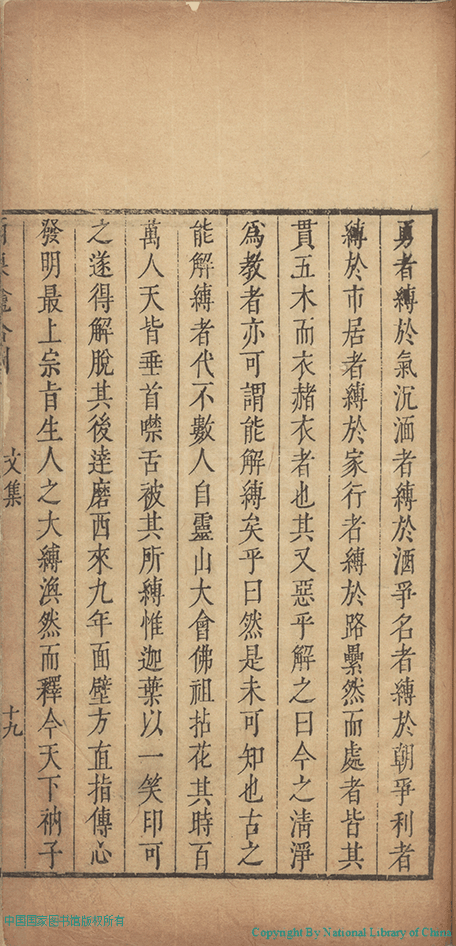 勇者縛於氣沉湎者縛於酒爭名者縛於朝爭利者
縛於市居者縛於家行者縛於路纍然而處者皆其
貫五木而衣赭衣者也其又惡乎解之曰今之清淨
爲教者亦可謂能解縛矣乎曰然是未可知也古之
能解縛者代不數人自靈山大會佛祖拈花其時百
萬人天皆垂首噤舌被其所縛惟迦葉以一笑印可
之遂得解脫其後達磨西來九年面壁方直指傳心
發明最上宗旨生人之大縛渙然而釋今天下衲子
文集
十九
中国国家图书馆版权所有
Copyright By National Library of China